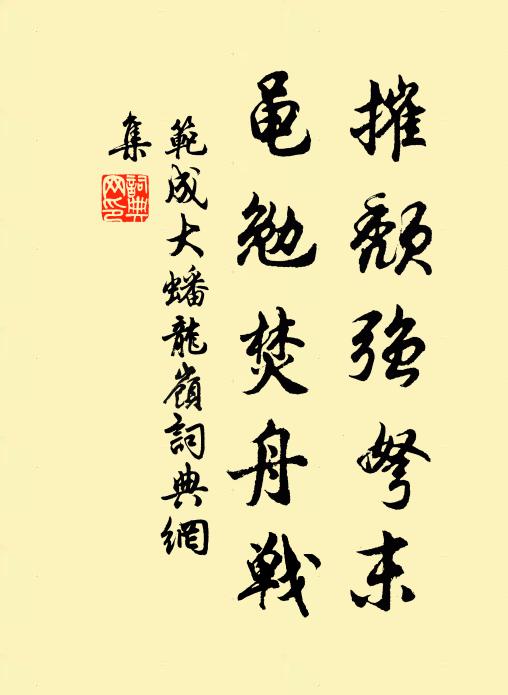 摧頹強弩末
黽勉焚舟戰
範成大蟠龍嶺詞典網
集
詞典
网印